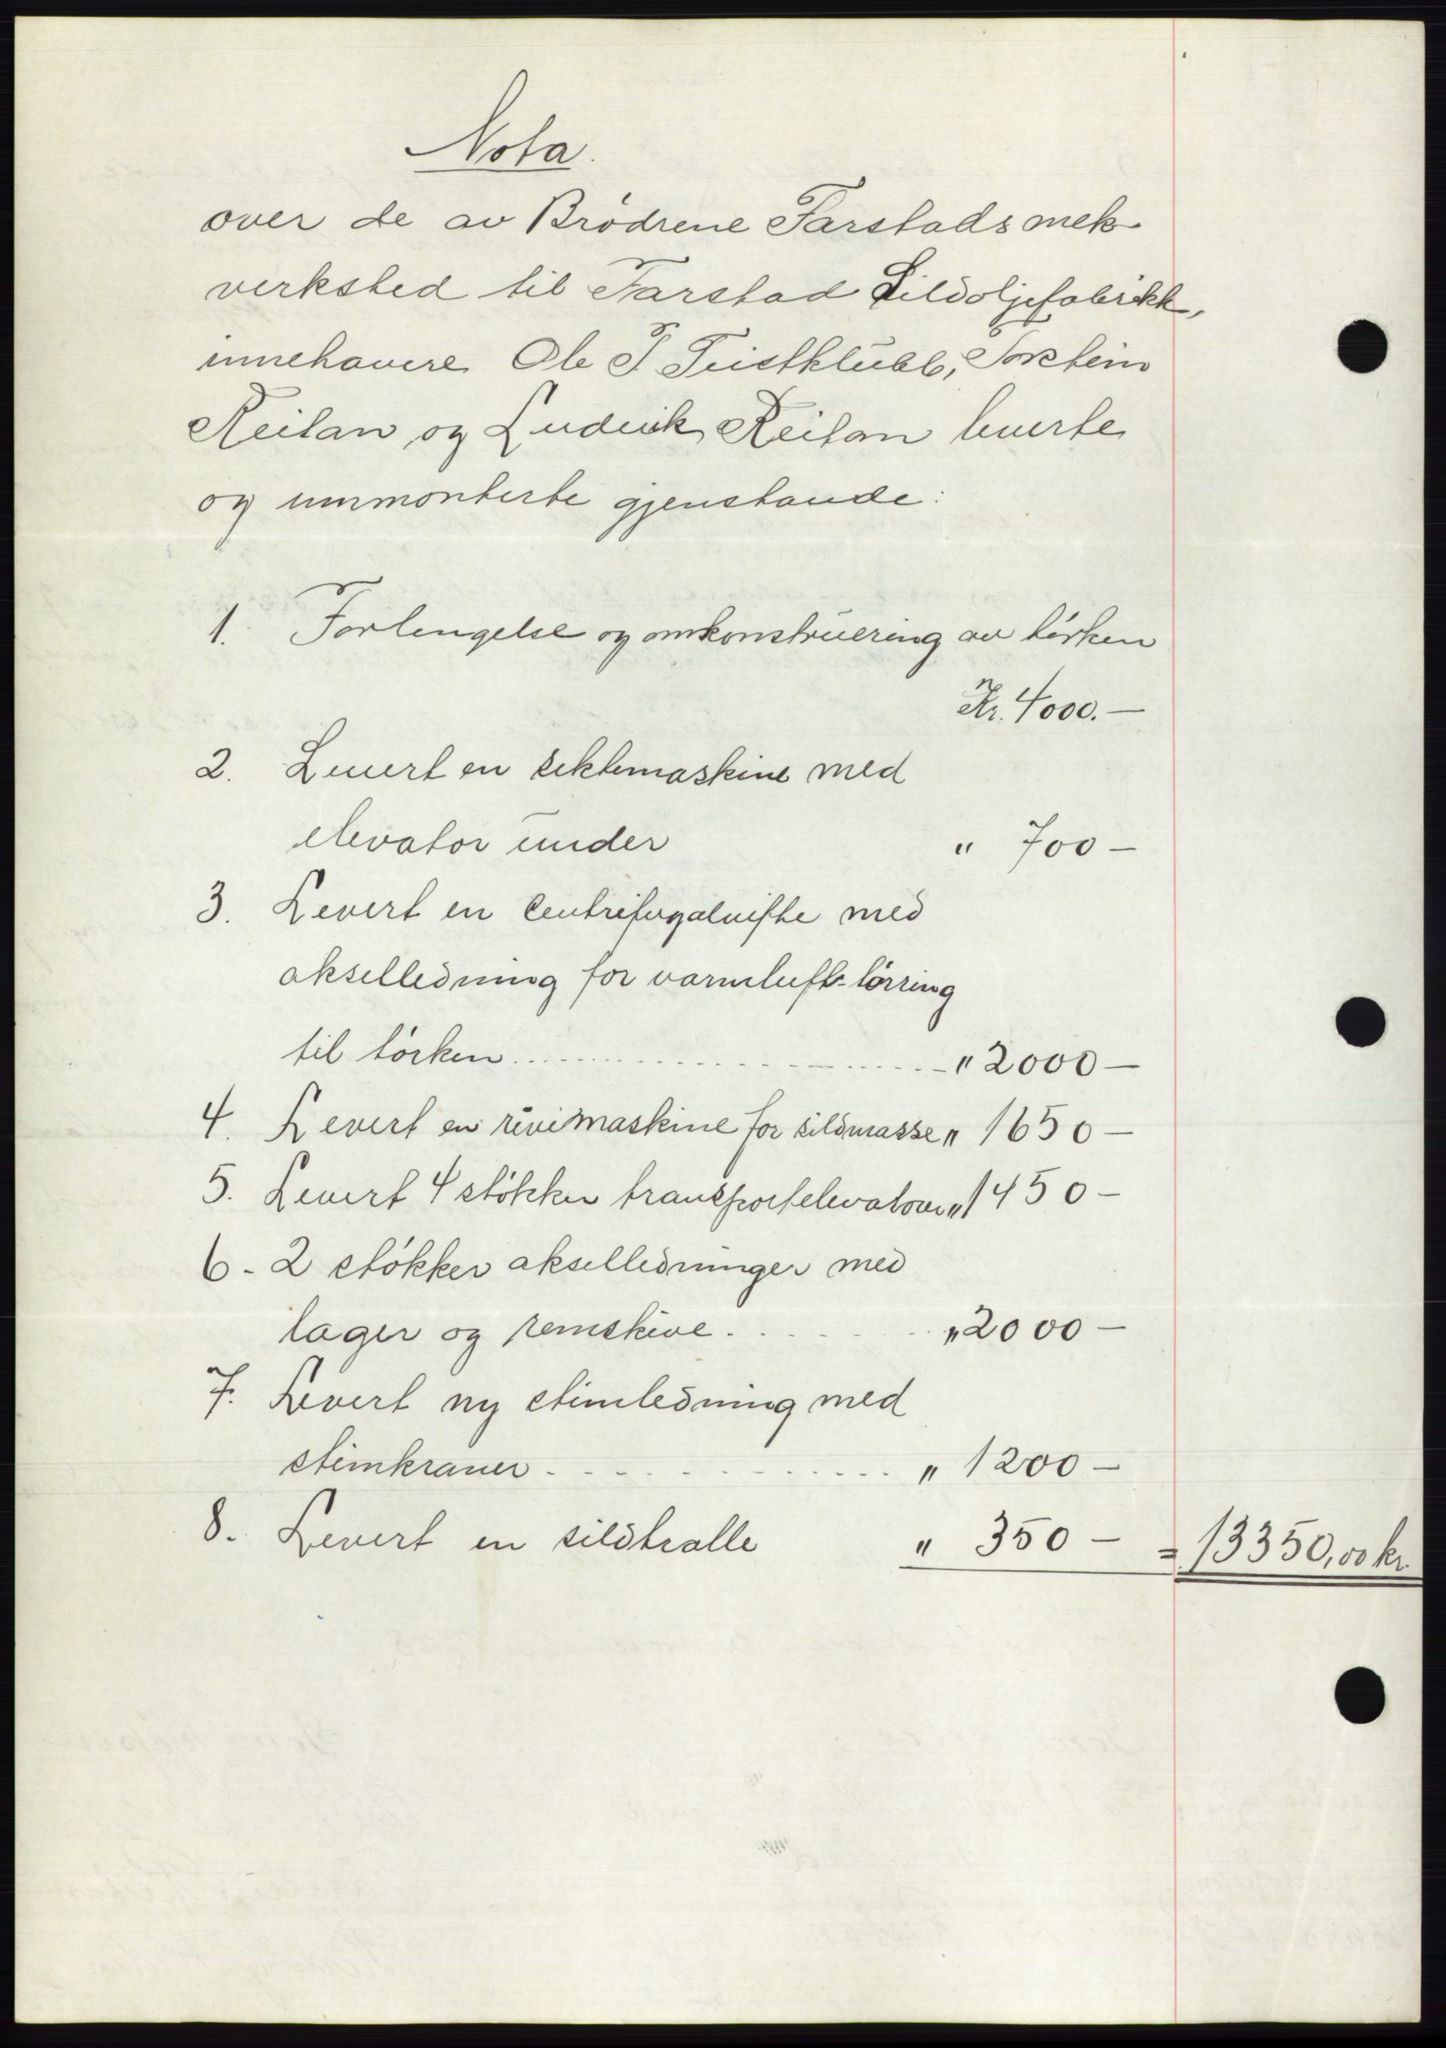 Nota.
over de av Brödrene Farstads mek
verksted til Farstad Sildoljefabrikk,
innehavere Ole P Teistklubb, Torstein
Reitan og Ludvik Reitan leverte
og innmonterte gjenstande:
1. Forlengelse og omkonstruering av törken
Kr. 4000.—
2. Levert en siktemaskine med
elevator under " 700 —
3. Levert en centrifugalvifte med
akselledning for varmluft-törring
til törken " 2000 —
4. Levert en rivemaskine for sildmasse " 1650 —
5. Levert 4 stökker transportelevatorer " 1450 —
6 - 2 stökker akselledninger med
lager og remskive. " 2000 —
7. Levert ny stimledning med
stimkraner " 1200 —
8. Levert en sildtralle " 350 — = 13350,00 kr.